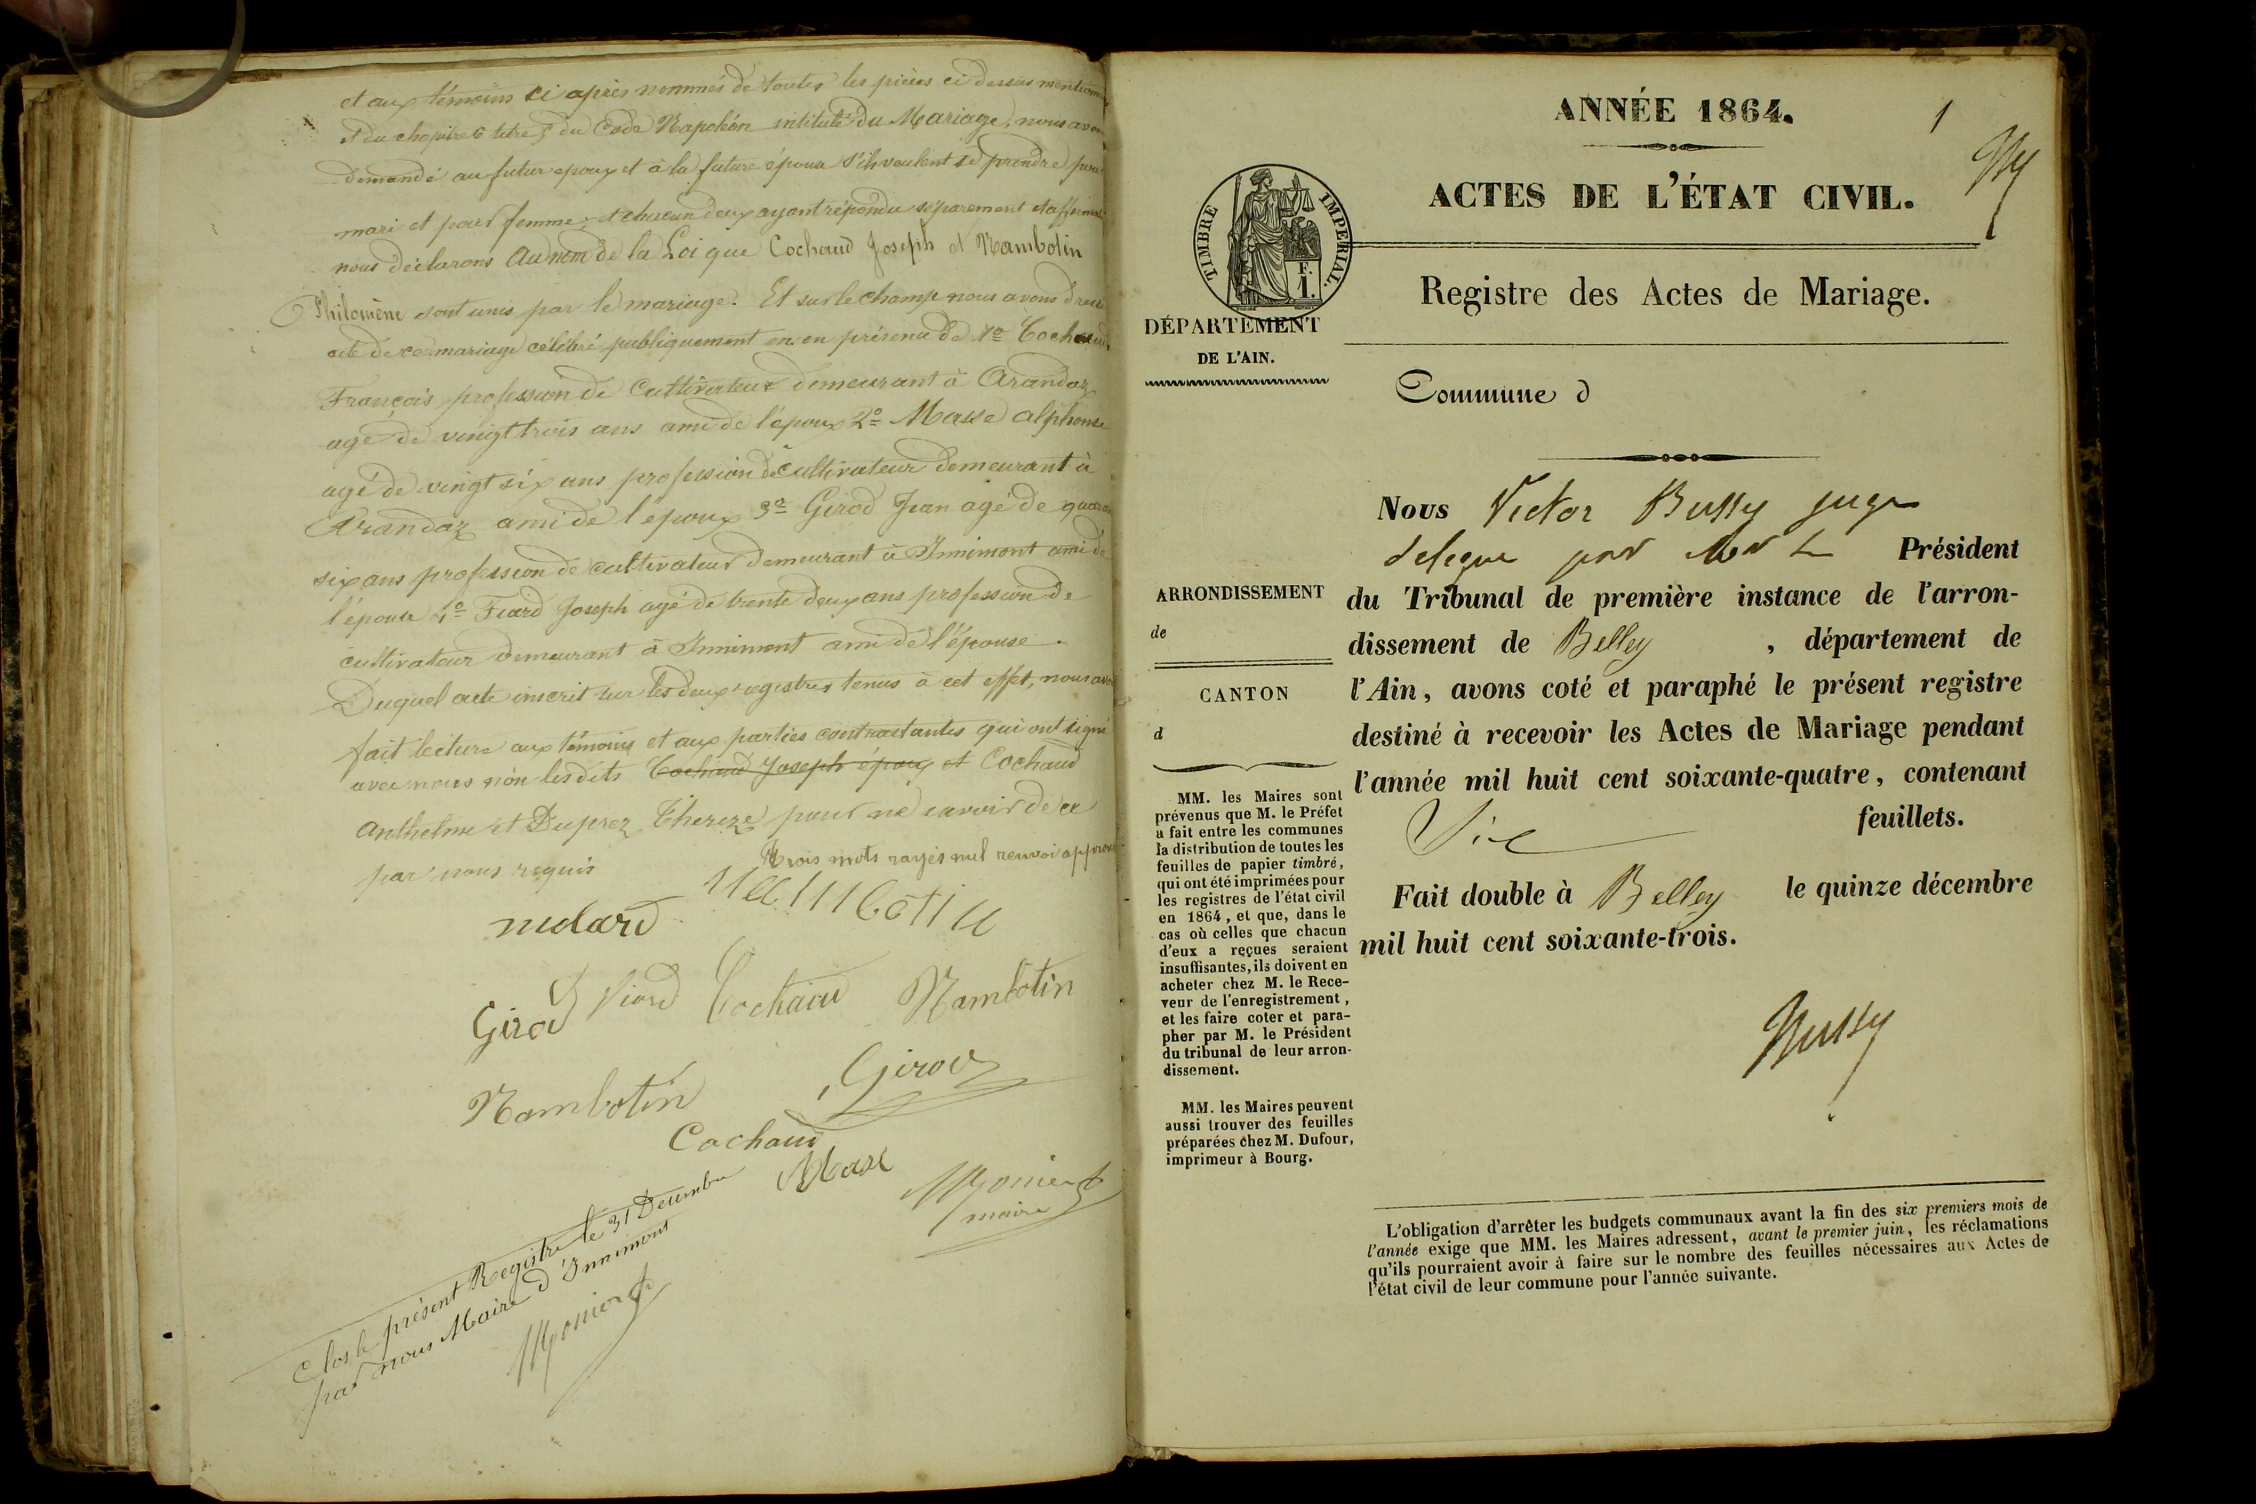 et aux témoins ci après nommés de toutes les pièces ci dessus mentionn
et du chapitre 6 titre 5 du Code Napoléon intitulé du Mariage, nous avon
demandé au futur epoux et à la future épouse s'ils veulent se prendre pour
mari et pour femme, et chacun deux ayant répondu séparement et affirmat
nous déclarons au nom de la Loi que Cochaud Joseph et Nambotin
Philomène sont unis par le mariage. Et sur le champ nous avons dressé
acte de ce mariage célébré publiquement en en présence de 1º Cochaud
François profession de Cultivateur demeurant à Arandaz
agé de vingt trois ans ami de l'époux 2º Masse alphonse
agé de vingt six ans profession de Cultivateur demeurant à
Arandaz ami de l'époux 3º Girod Jean agé de quaran
six ans profession de cultivateur demeurant à Innimont ami de
l'épouse 4º Fiard Joseph agé de trente deux ans profession de
cultivateur demeurant à Innimont ami de l'épouse.
Duquel acte inscrit sur les deux registres tenus à cet effet, nous avon
fait lecture aux témoins et aux parties contractantes qui ont signé
avec nous non lesdits Cochaud Joseph époux et Cochaud
Anthelme et Duprez Thereze pour ne savoir de ce
par nous requis
Trois mots rayés nul renvoi approuv
Girod Viard Cochaud Nambotin
Nambotin Girod
Cochaud
Mase
Monier
maire
Clos le présent Registre le 31 Decembre
par nous Maire d'Innimont
Monier
ANNÉE 1864.
1
ACTES DE L'ÉTAT CIVIL.
TIMBRE IMPERIAL.
F.
1.
Registre des Actes de Mariage.
DÉPARTEMENT
DE L'AIN.
Commune d
ARRONDISSEMENT
de
CANTON
d
MM. les Maires sont
prévenus que M. le Préfet
a fait entre les communes
la distribution de toutes les
feuilles de papier timbré,
qui ont été imprimées pour
les registres de l'état civil
en 1864, et que, dans le
cas où celles que chacun
d'eux a reçues seraient
insuffisantes, ils doivent en
acheter chez M. le Rece-
veur de l'enregistrement,
et les faire coter et para-
pher par M. le Président
du tribunal de leur arron-
dissement.
MM. les Maires peuvent
aussi trouver des feuilles
préparées chez M. Dufour,
imprimeur à Bourg.
Nous Victor Bussy juge
delegue par Mr le Président
du Tribunal de première instance de l'arron-
dissement de Belley , département de
l'Ain, avons coté et paraphé le présent registre
destiné à recevoir les Actes de Mariage pendant
l'année mil huit cent soixante-quatre, contenant
Six feuillets.
Fait double à Belley le quinze décembre
mil huit cent soixante-trois.
Bussy
L'obligation d'arrêter les budgets communaux avant la fin des six premiers mois de
l'année exige que MM. les Maires adressent, avant le premier juin, les réclamations
qu'ils pourraient avoir à faire sur le nombre des feuilles nécessaires aux Actes de
l'état civil de leur commune pour l'année suivante.